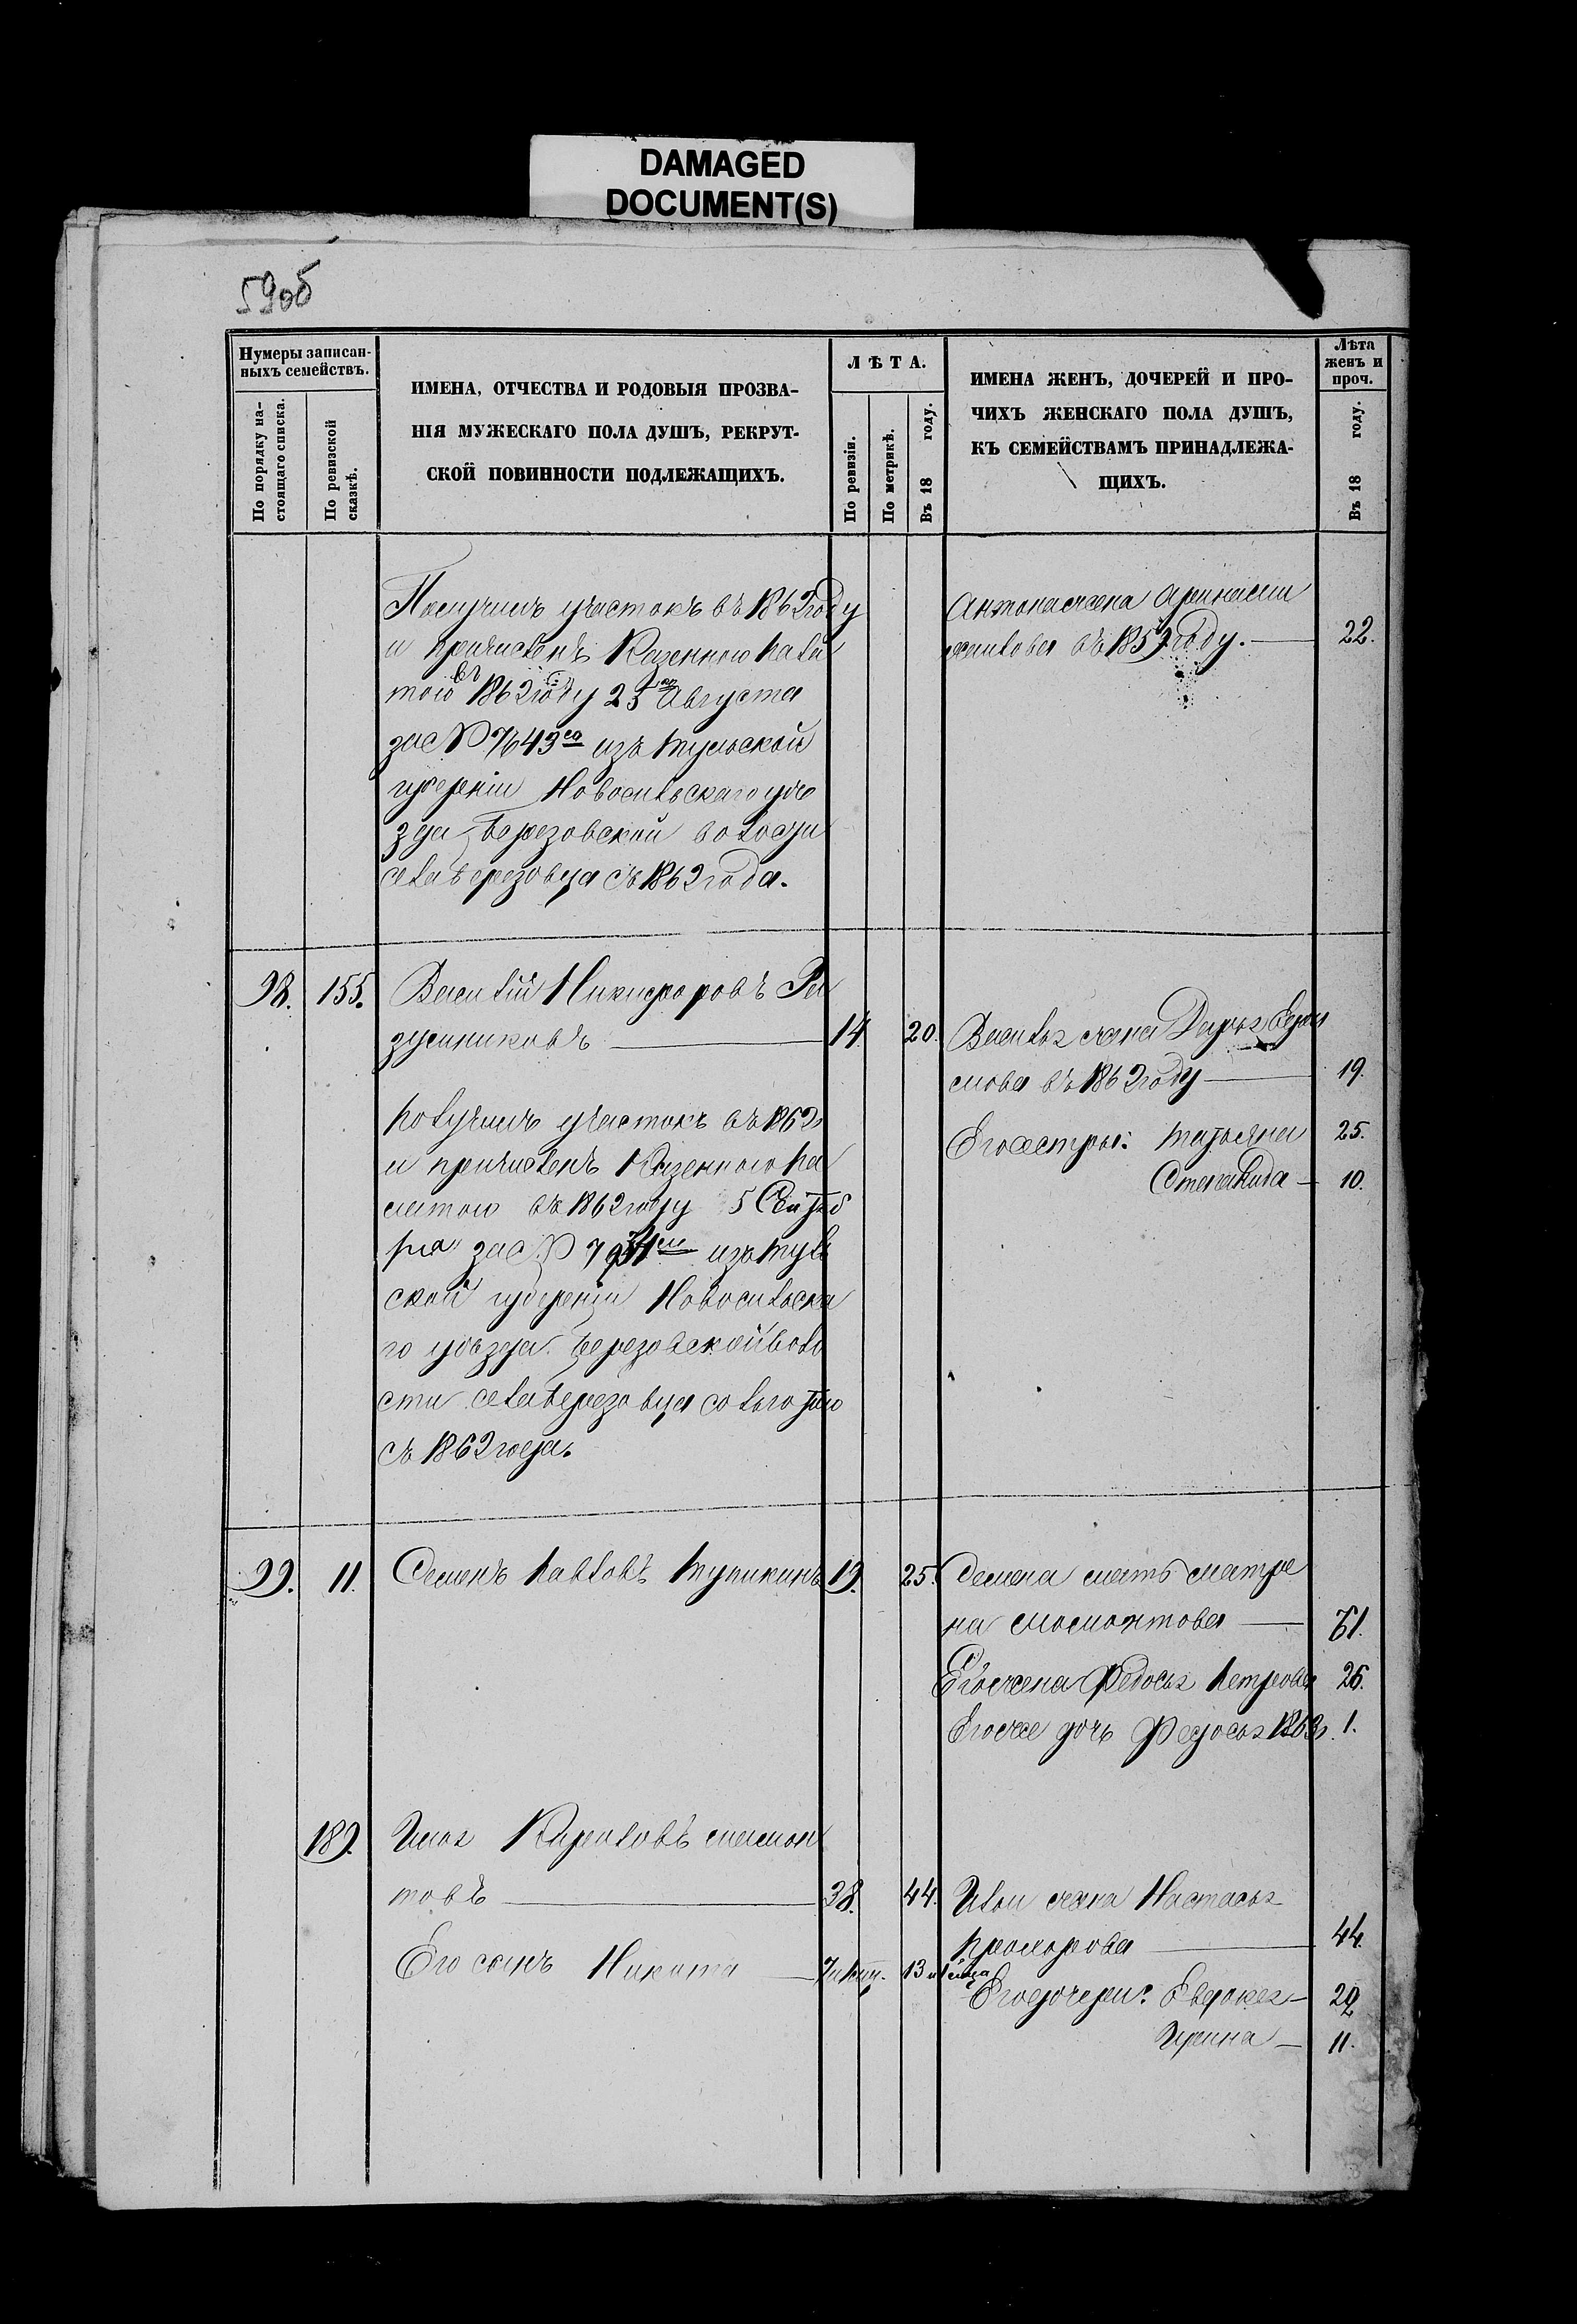 DAMAGED
DOCUMENT(S)
59об
Нумеры записан-
ныхъ семействъ.
По порядку на-
стоящаго списка.
По ревизской
сказкѣ.
ИМЕНА, ОТЧЕСТВА И РОДОВЫЯ ПРОЗВА-
НІЯ МУЖЕСКАГО ПОЛА ДУШЪ, РЕКРУТ-
СКОЙ ПОВИННОСТИ ПОДЛЕЖАЩИХЪ.
ЛѢТА.
По ревизіи.
По метрикѣ.
Въ 18 году.
ИМЕНА ЖЕНЪ, ДОЧЕРЕЙ И ПРО-
ЧИХЪ ЖЕНСКАГО ПОЛА ДУШЪ,
КЪ СЕМЕЙСТВАМЪ ПРИНАДЛЕЖА-
ЩИХЪ.
Лѣта
женъ и
проч.
Въ 18 году.
Получилъ участокъ въ 1862 году
и причисленъ Казенною Пала
тою въ 1862 году 23 Августа
за № 7643 изъ Тульской
губерніи Новосильскаго уѣ
зда Березовской волости
села Березовца съ 1862 года.
Антона жена
въ 185 году. 22.
98. 155. Василій Никифоровъ Ра
зуинковъ 14 20.
Получилъ участокъ въ 1862
и причисленъ Казенною Па
латою въ 1862 году 5 Сентяб
ря за № изъ Туль
ской губерніи Новосильска
го уѣзда Березовской воло
сти села Березовца
съ 1862 года.
Василья жена Дарья
въ 1862 году 19.
Его сестры: Татьяна 25.
Степанида 10.
99. 11. Семенъ Павловъ Тупикинъ 19. 25.
Семена мать Матре
на Мамонтова 61.
Его жена Федосья Петрова 26.
Его же дочь Федосья 1863 1.
189. Илья Карповъ Мамон
товъ 38. 44.
Его сынъ Никита 13
Ильи жена Настасья
Прохорова 44.
Его дочери: Евдокея 20
Ирина 11.